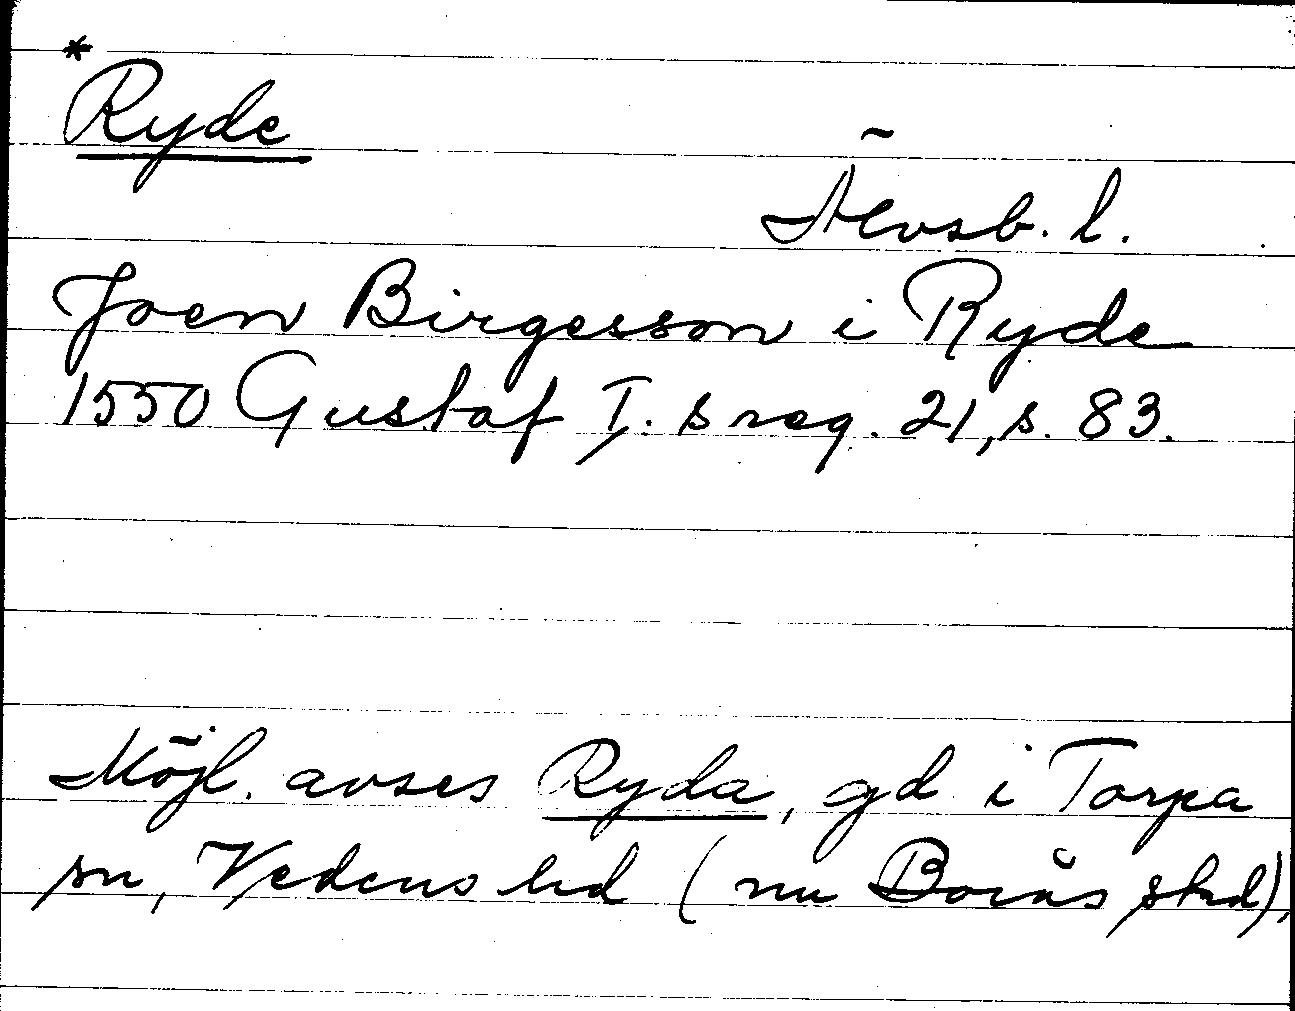 *
Ryde
Älvsb. l.
Joen Birgersson i Ryde
1550 Gustaf I:s reg. 21, s. 83.
Möjl. avses Ryda, gd i Torpa
sn, Vedens hd (nu Borås skd),